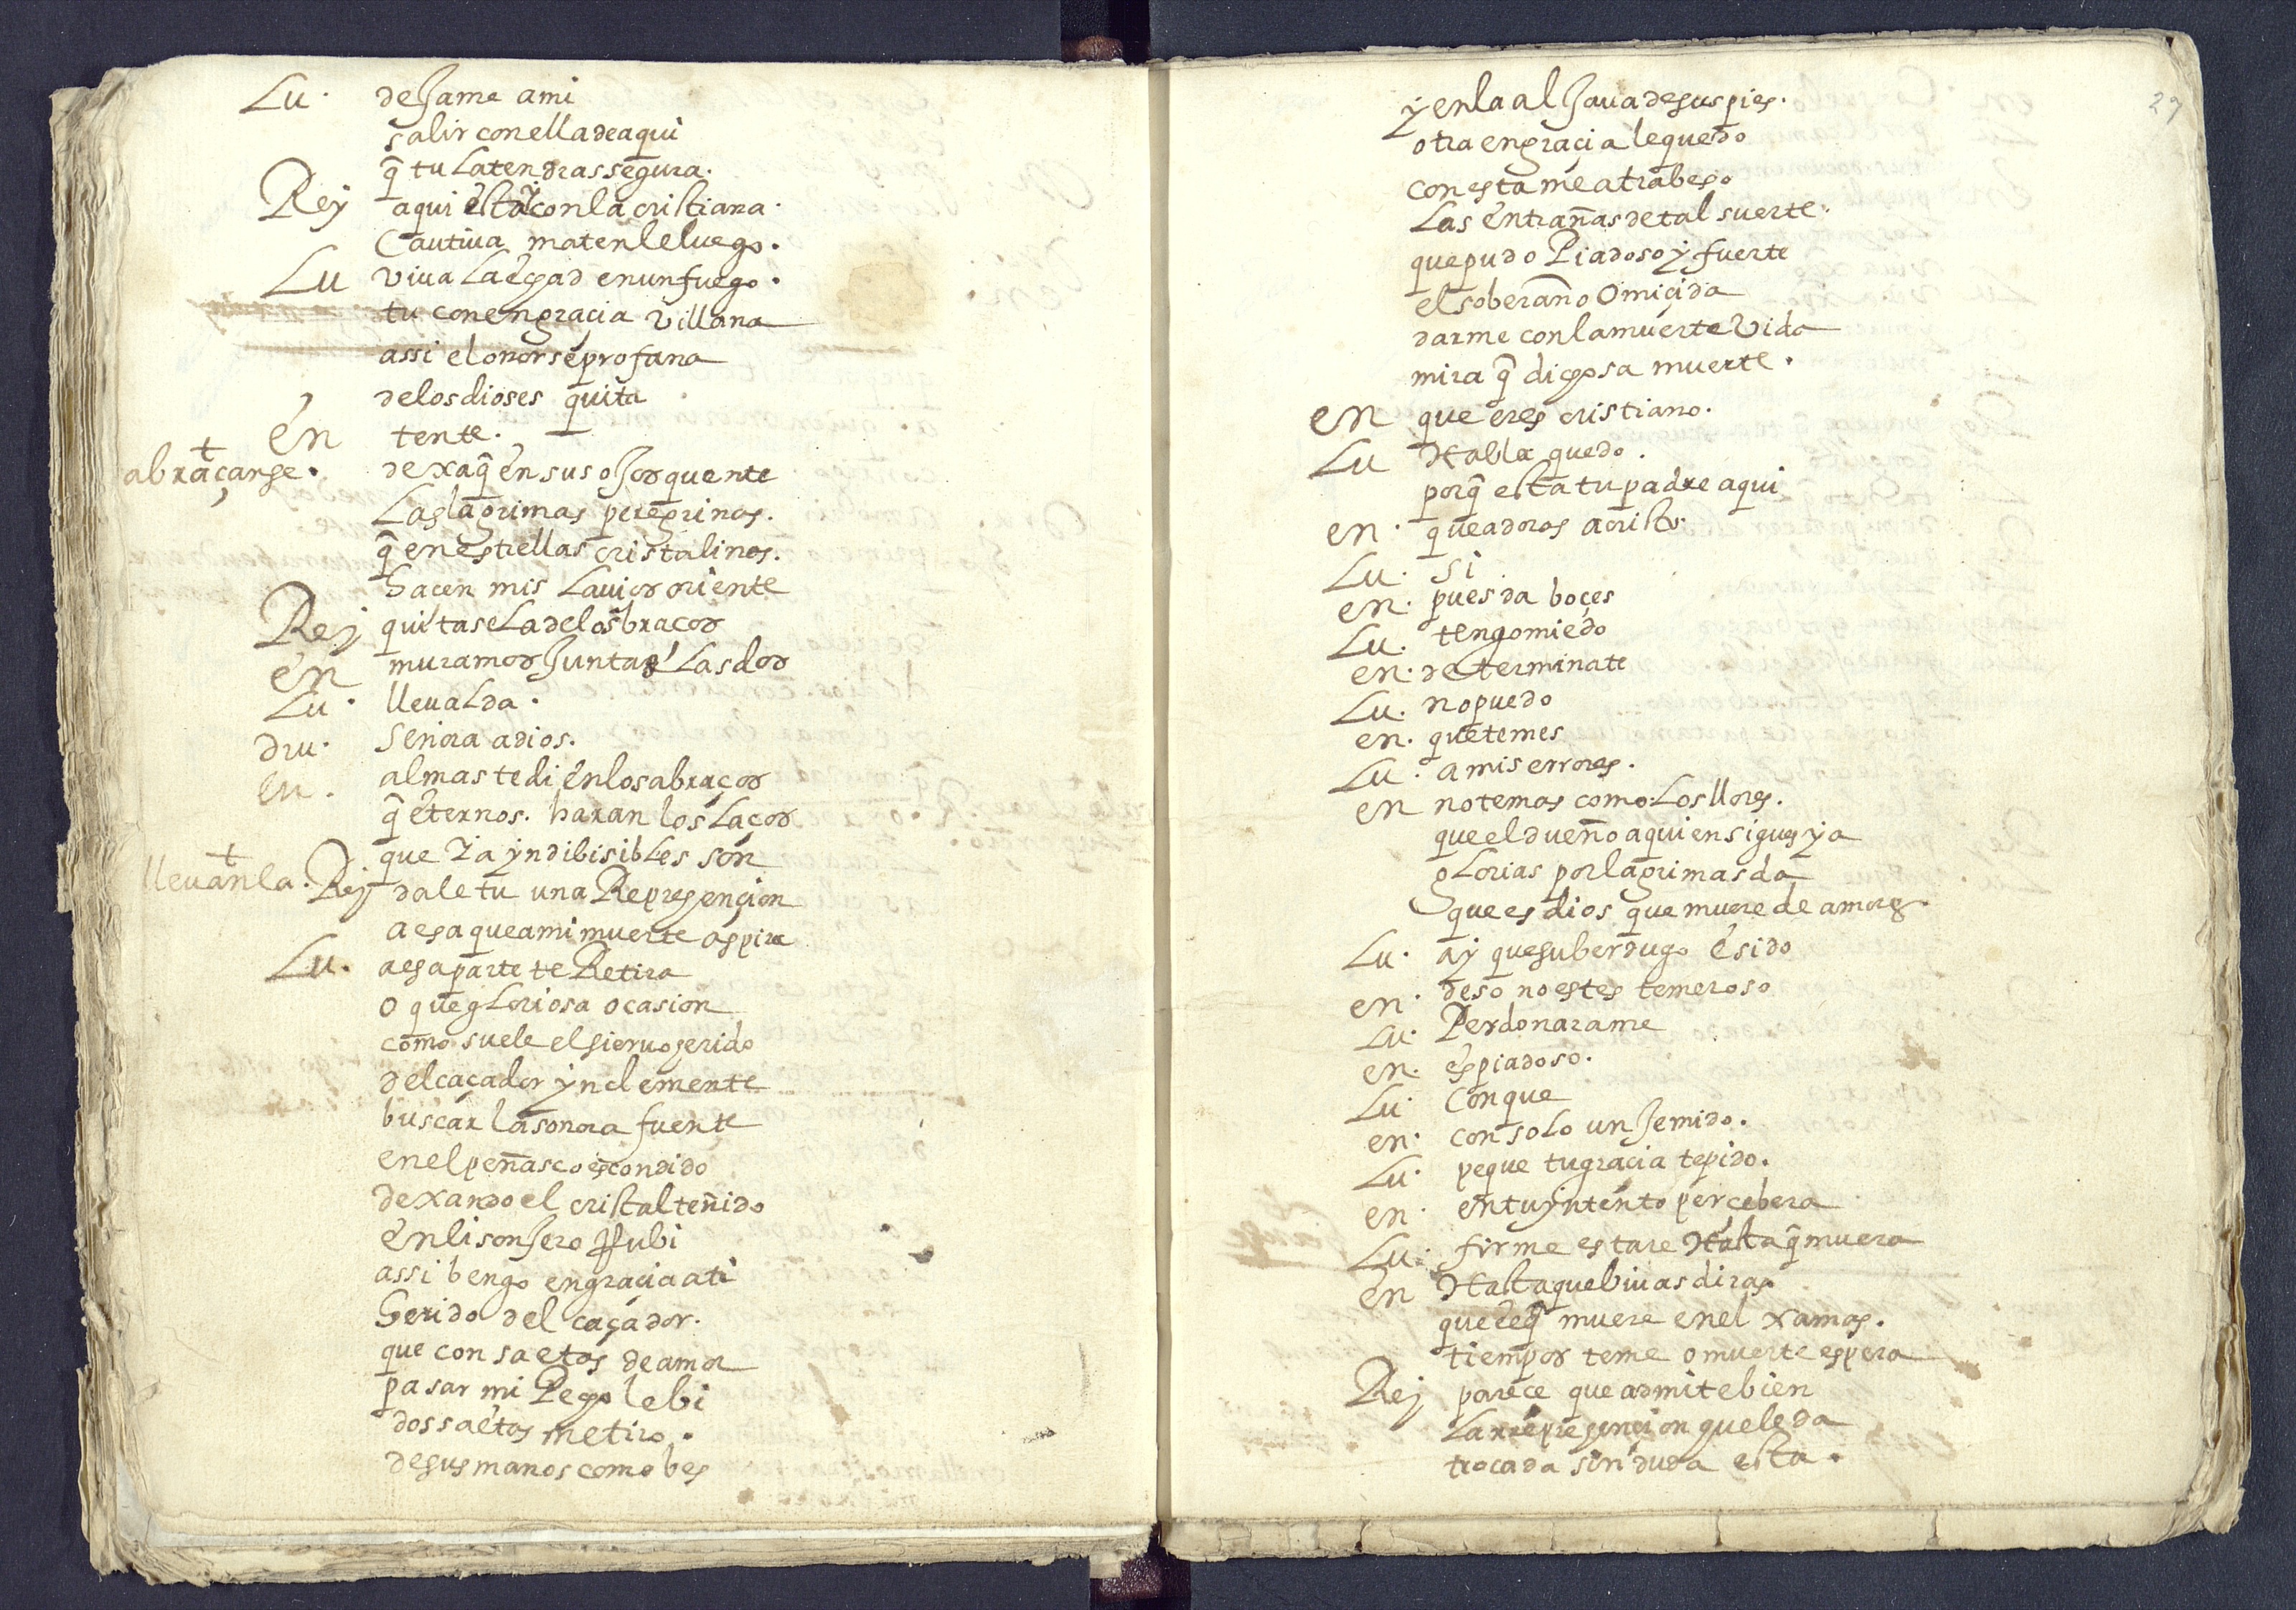 Lu. deJame ami
salir con ella de aqui
q̃ tu la tendras segura.
Rey aqui està con la cristiana.
Cautiua matenle luego.
Lu viua la ẽgad en un fuego.
tu con engracia villana
assi el onor se profana
de los dioses quita
en tente.
+
abraçanse. dexa q̃ en sus oJos quente
las lagrimas peregrinas.
q̃ en estrellas cristalinas.
hacen mis lauios oriente
Rey quitasela de los braços
en muramos Juntas las dos
Lu. lleualda.
dru. Señora adios.
en. almas te di en los abraços
q̃ eternos. haran los laços
que ya yndibisibles son
+
lleuanla. Rey dale tu una Represençion
a esa que a mi muerte aspira
Lu. a esa parte te Retira
o que gloriosa ocasion
como suele el sieruo Jerido
del caçador ynclemente
buscar la sonora fuente
en el peñasco escondido
dexando el cristal teñido
en lisonJero Rubi
assi bengo engracia a ti
herido del caçador.
que con saetas de amor
pasar mi Pego le bi
dos saetas me tiro.
de sus manos como bes
29
y en la alJaua de sus pies.
otra engracia le quedo
con esta me atrabeso
las entrañas de tal suerte.
que pudo Piadoso y fuerte
el soberano omiçida
darme con la muerte vida
mira q̃ digosa muerte.
en que eres cristiano.
Lu Habla quedo.
porq̃ esta tu padre aqui
en. que adoras a cristo.
Lu. si
en. pues da boçes
Lu. tengo miedo
en. determinate
Lu. no puedo
en. que temes
Lu. a mis errores.
en no temas como los llores.
que el dueño a quien sigues ya
glorias por lagrimas da
que es dios que muere de amores.
Lu. ay que su berdugo e sido
en. deso no estes temeroso
Lu. Perdonarame
en. es piadoso.
Lu. Con que
en. con solo un Jemido.
Lu. peque tu gracia te pido.
en. en tu yntento persebera
Lu. firme estare Hasta q̃ muera
en Hasta que biuas diras.
que el q̃ muere en el xamas.
tiempos teme o muerte espera
Rey parece que admite bien
la rrepresençion que le da
trocada sin duda esta.